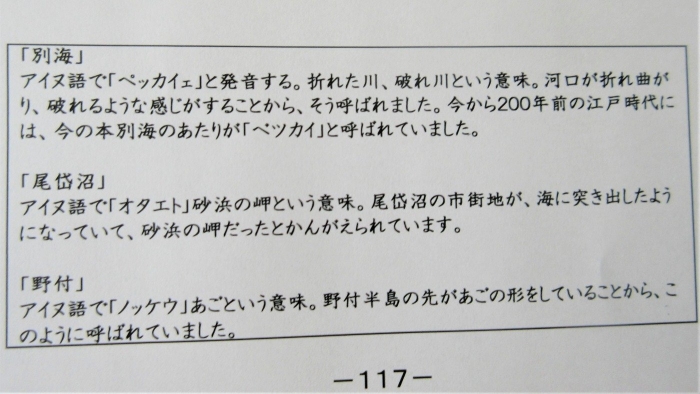 「別海」
アイヌ語で「ペッカイェ」と発音する。折れた川、破れ川という意味。河口が折れ曲が
り、破れるような感じがすることから、そう呼ばれました。今から200年前の江戸時代に
は、今の本別海のあたりが「ベツカイ」と呼ばれていました。
「尾岱沼」
アイヌ語で「オタエト」砂浜の岬という意味。尾岱沼の市街地が、海に突き出したよう
になっていて、砂浜の岬だったとかんがえられています。
「野付」
アイヌ語で「ノッケウ」あごという意味。野付半島の先があごの形をしていることから、こ
のように呼ばれていました。
－117－